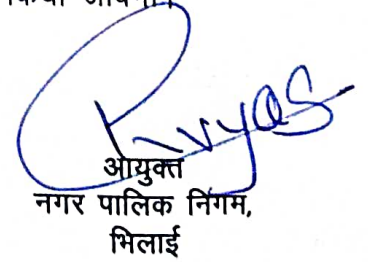 Rvyas
आयुक्त
नगर पालिक निगम,
भिलाई